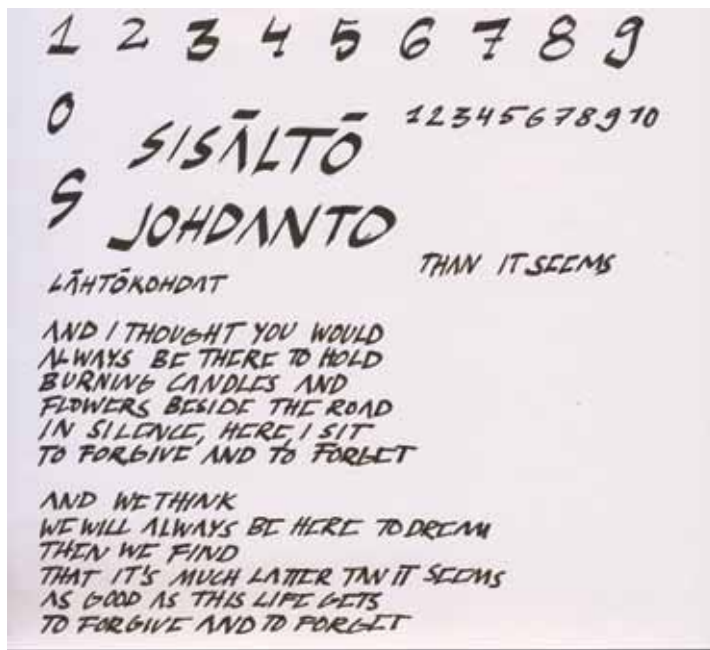 1 2 3 4 5 6 7 8 9
0
1 2 3 4 5 6 7 8 9 10
SISĀLTŌ
9
JOHDANTO
THAN IT SEEMS
LĀHTŌKOHDAT
AND I THOUGHT YOU WOULD
ALWAYS BE THERE TO HOLD
BURNING CANDLES AND
FLOWERS BESIDE THE ROAD
IN SILENCE, HERE, I SIT
TO FORGIVE AND TO FORGET
AND WE THINK
WE WILL ALWAYS BE HERE TO DREAM
THEN WE FIND
THAT IT'S MUCH LATTER TAN IT SEEMS
AS GOOD AS THIS LIFE GETS
TO FORGIVE AND TO FORGET